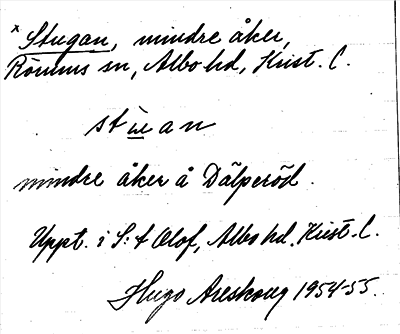 * Stugan, mindre åker,
Rörums sn, Albo hd, Krist. L.
stu̲an
mindre åker å Dälperöd.
Uppt. i S:t Olof, Albo hd. Krist. L.
Hugo Areskoug 1954-55.